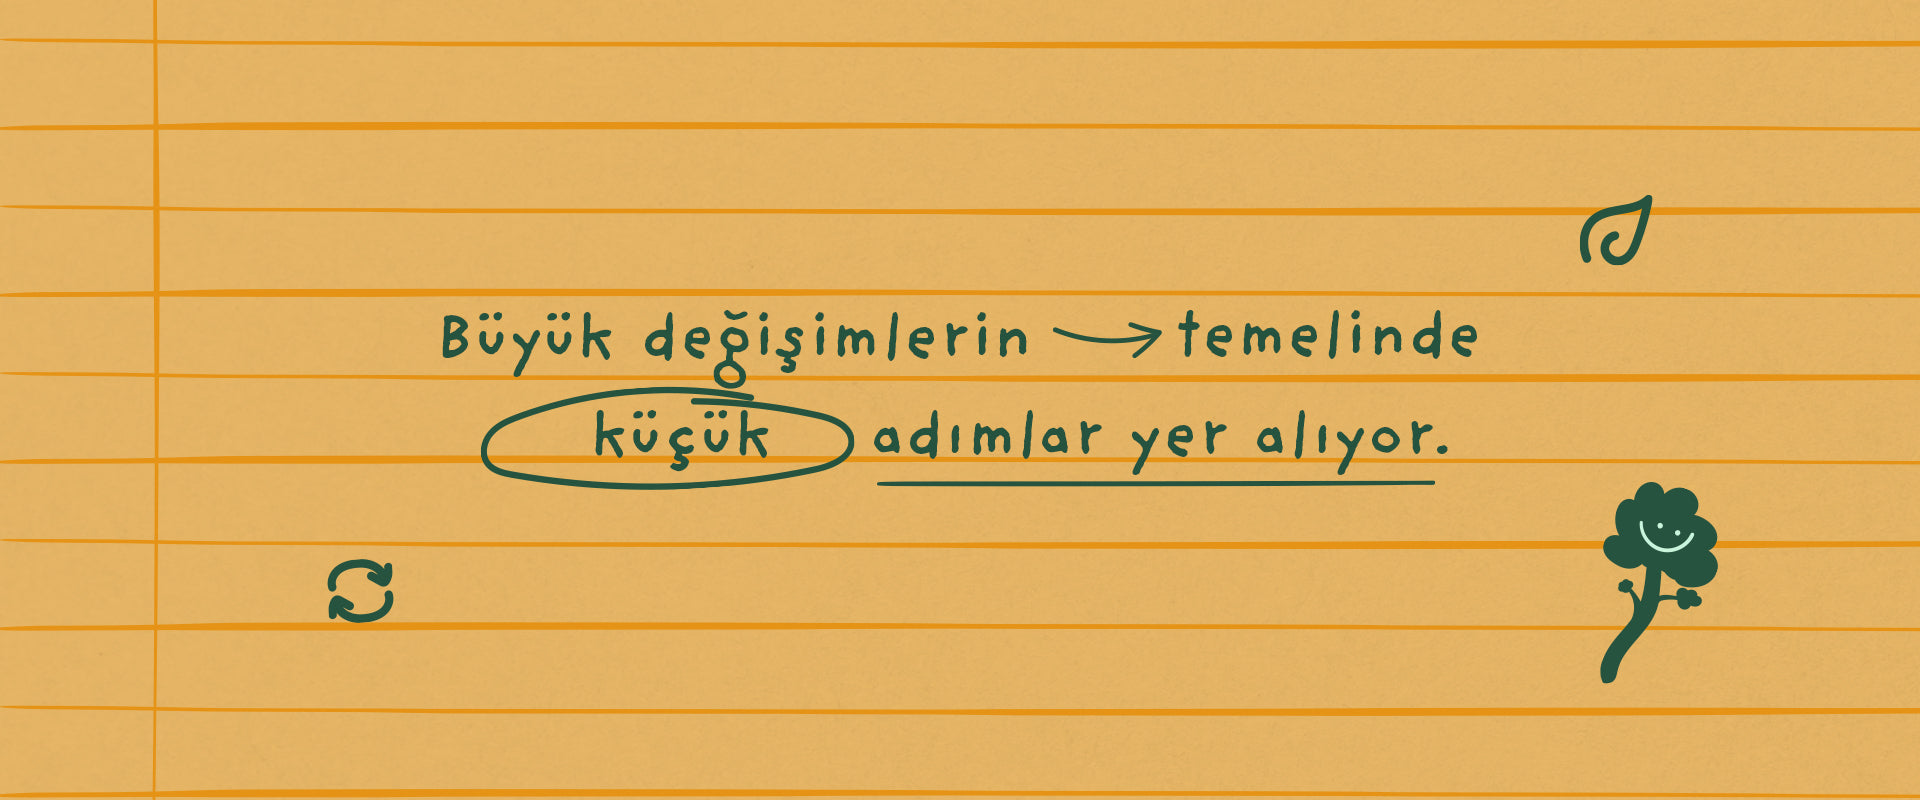 Büyük değişimlerin → temelinde
küçük adımlar yer alıyor.